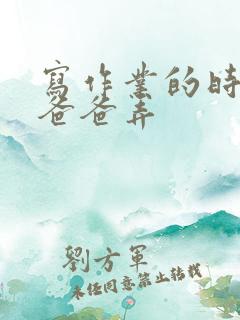 寫作業的時
爸爸弄
劉方軍
未經同意禁止轉載